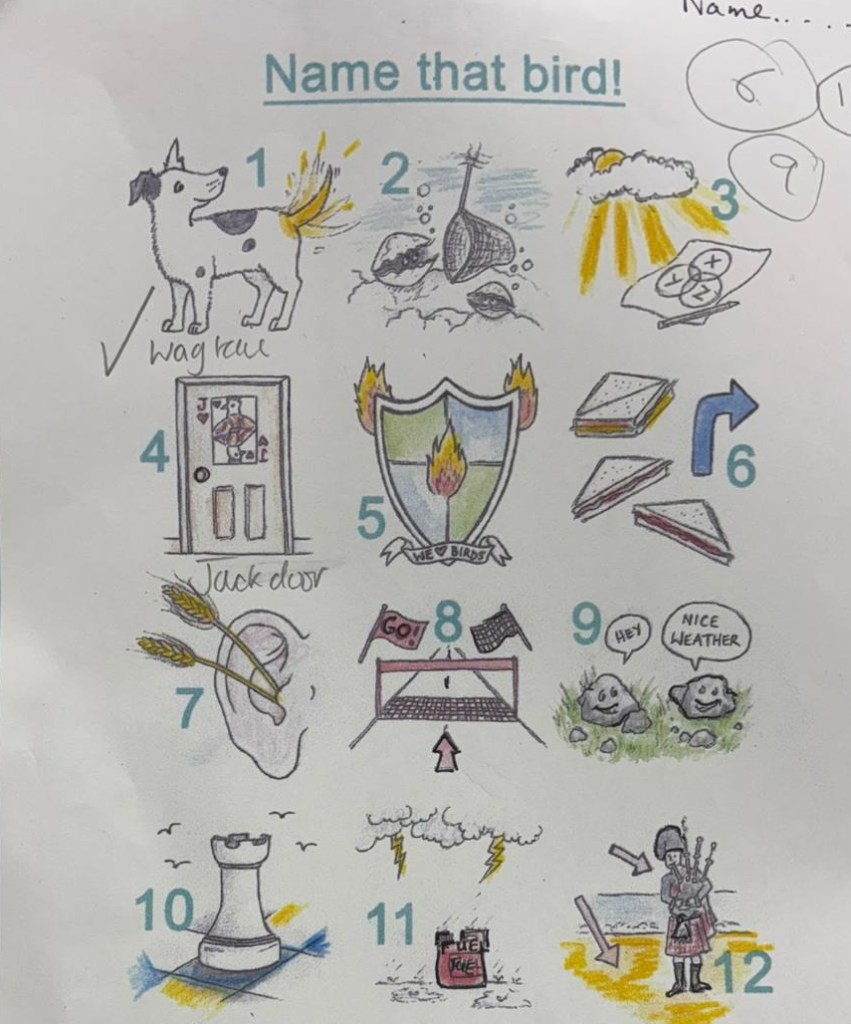 Name.....
Name that bird!
6
9
1
2
3
X
Y
Z
wagtail
4
J
J
5
WE ♥ BIRDS
6
Jack door
7
GO!
8
9
HEY
NICE
WEATHER
10
11
FUEL
FUEL
12